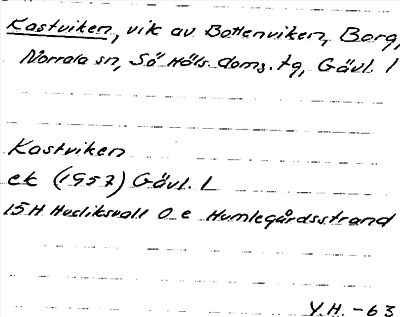 Kastviken, vik av Bottenviken, Borg,
Norrala sn, Sö Häls. doms. tg, Gävl. l
Kastviken
ek (1957) Gävl. L
15H Hudiksvall 0 e Humlegårdsstrand
Y.H. -63